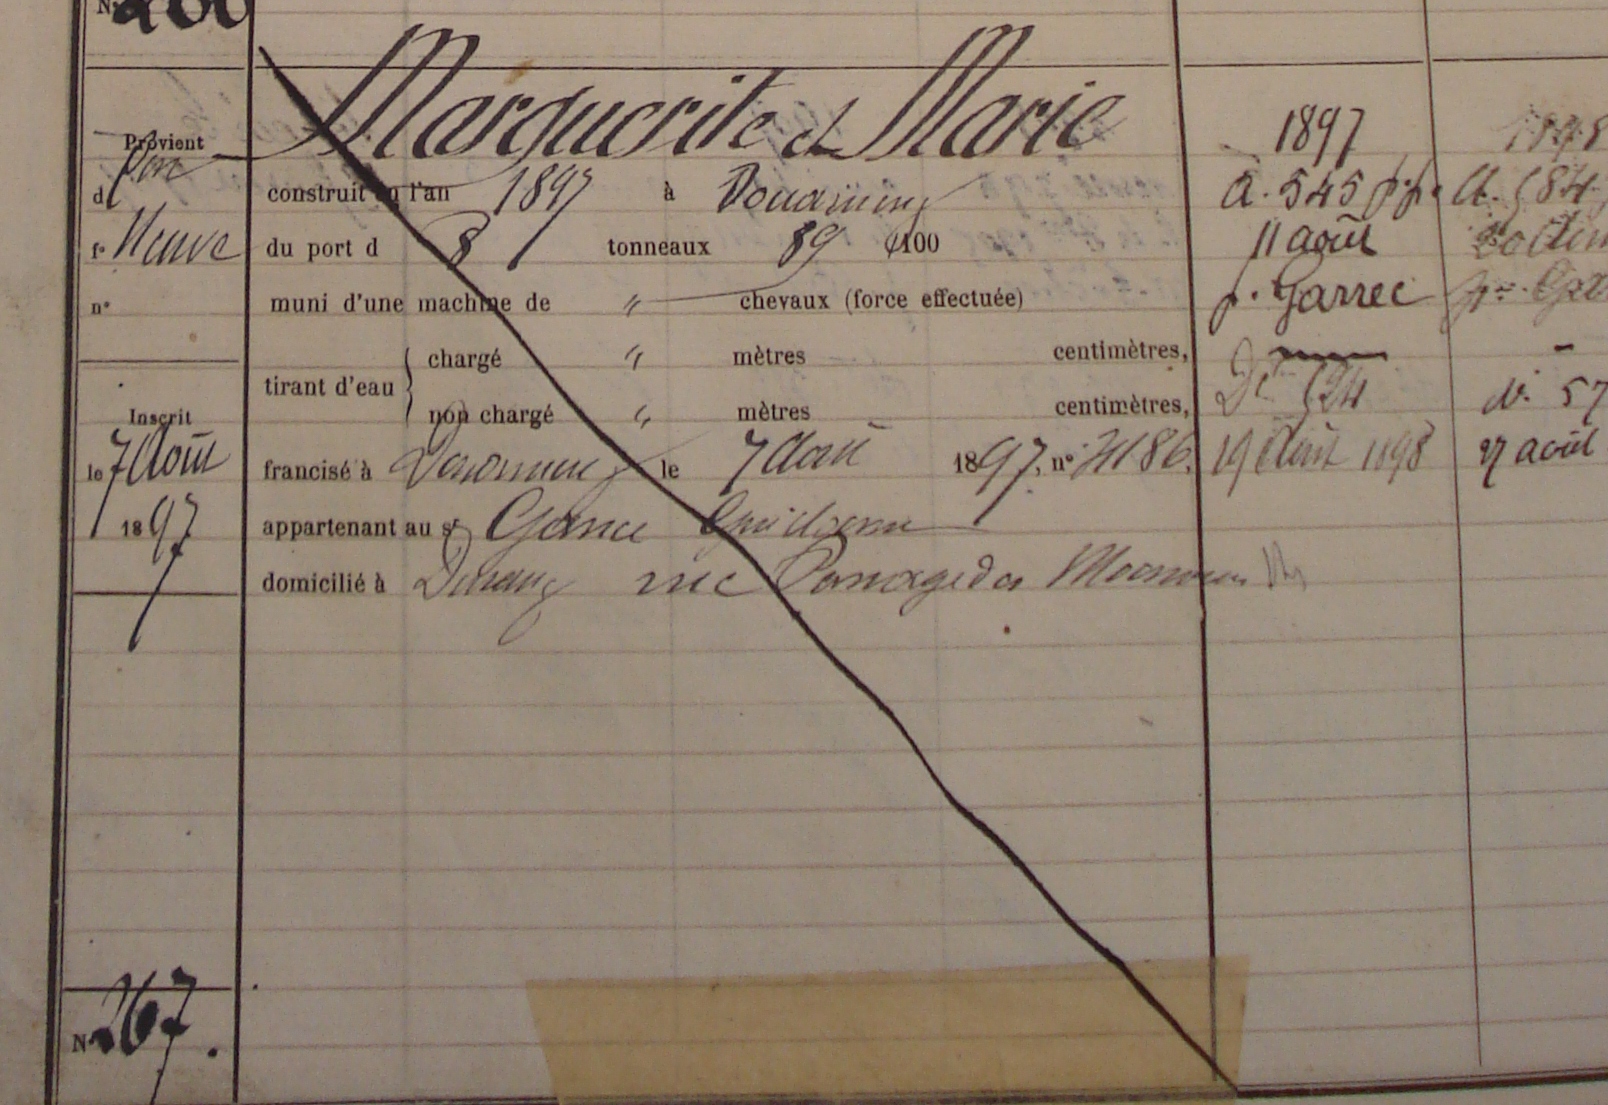 N° 266
Marguerite et Marie
Provient
d
f° Neuve
n°
construit en l'an 1897 à Douarnenez
du port d 8 tonneaux 89 /100
muni d'une machine de " chevaux (force effectuée)
tirant d'eau
chargé " mètres centimètres,
non chargé " mètres centimètres,
Inscrit
le 7 Août
1897
francisé à Douarnenez le 7 Août 1897, n° 2186.
appartenant au sr Guillaume
domicilié à Douarnenez rue
1897
a. 545
11 août
p. Garrec
Dt 524
19 Août 1898
1898
a. 584
20
dt 57
27 août
N° 267.